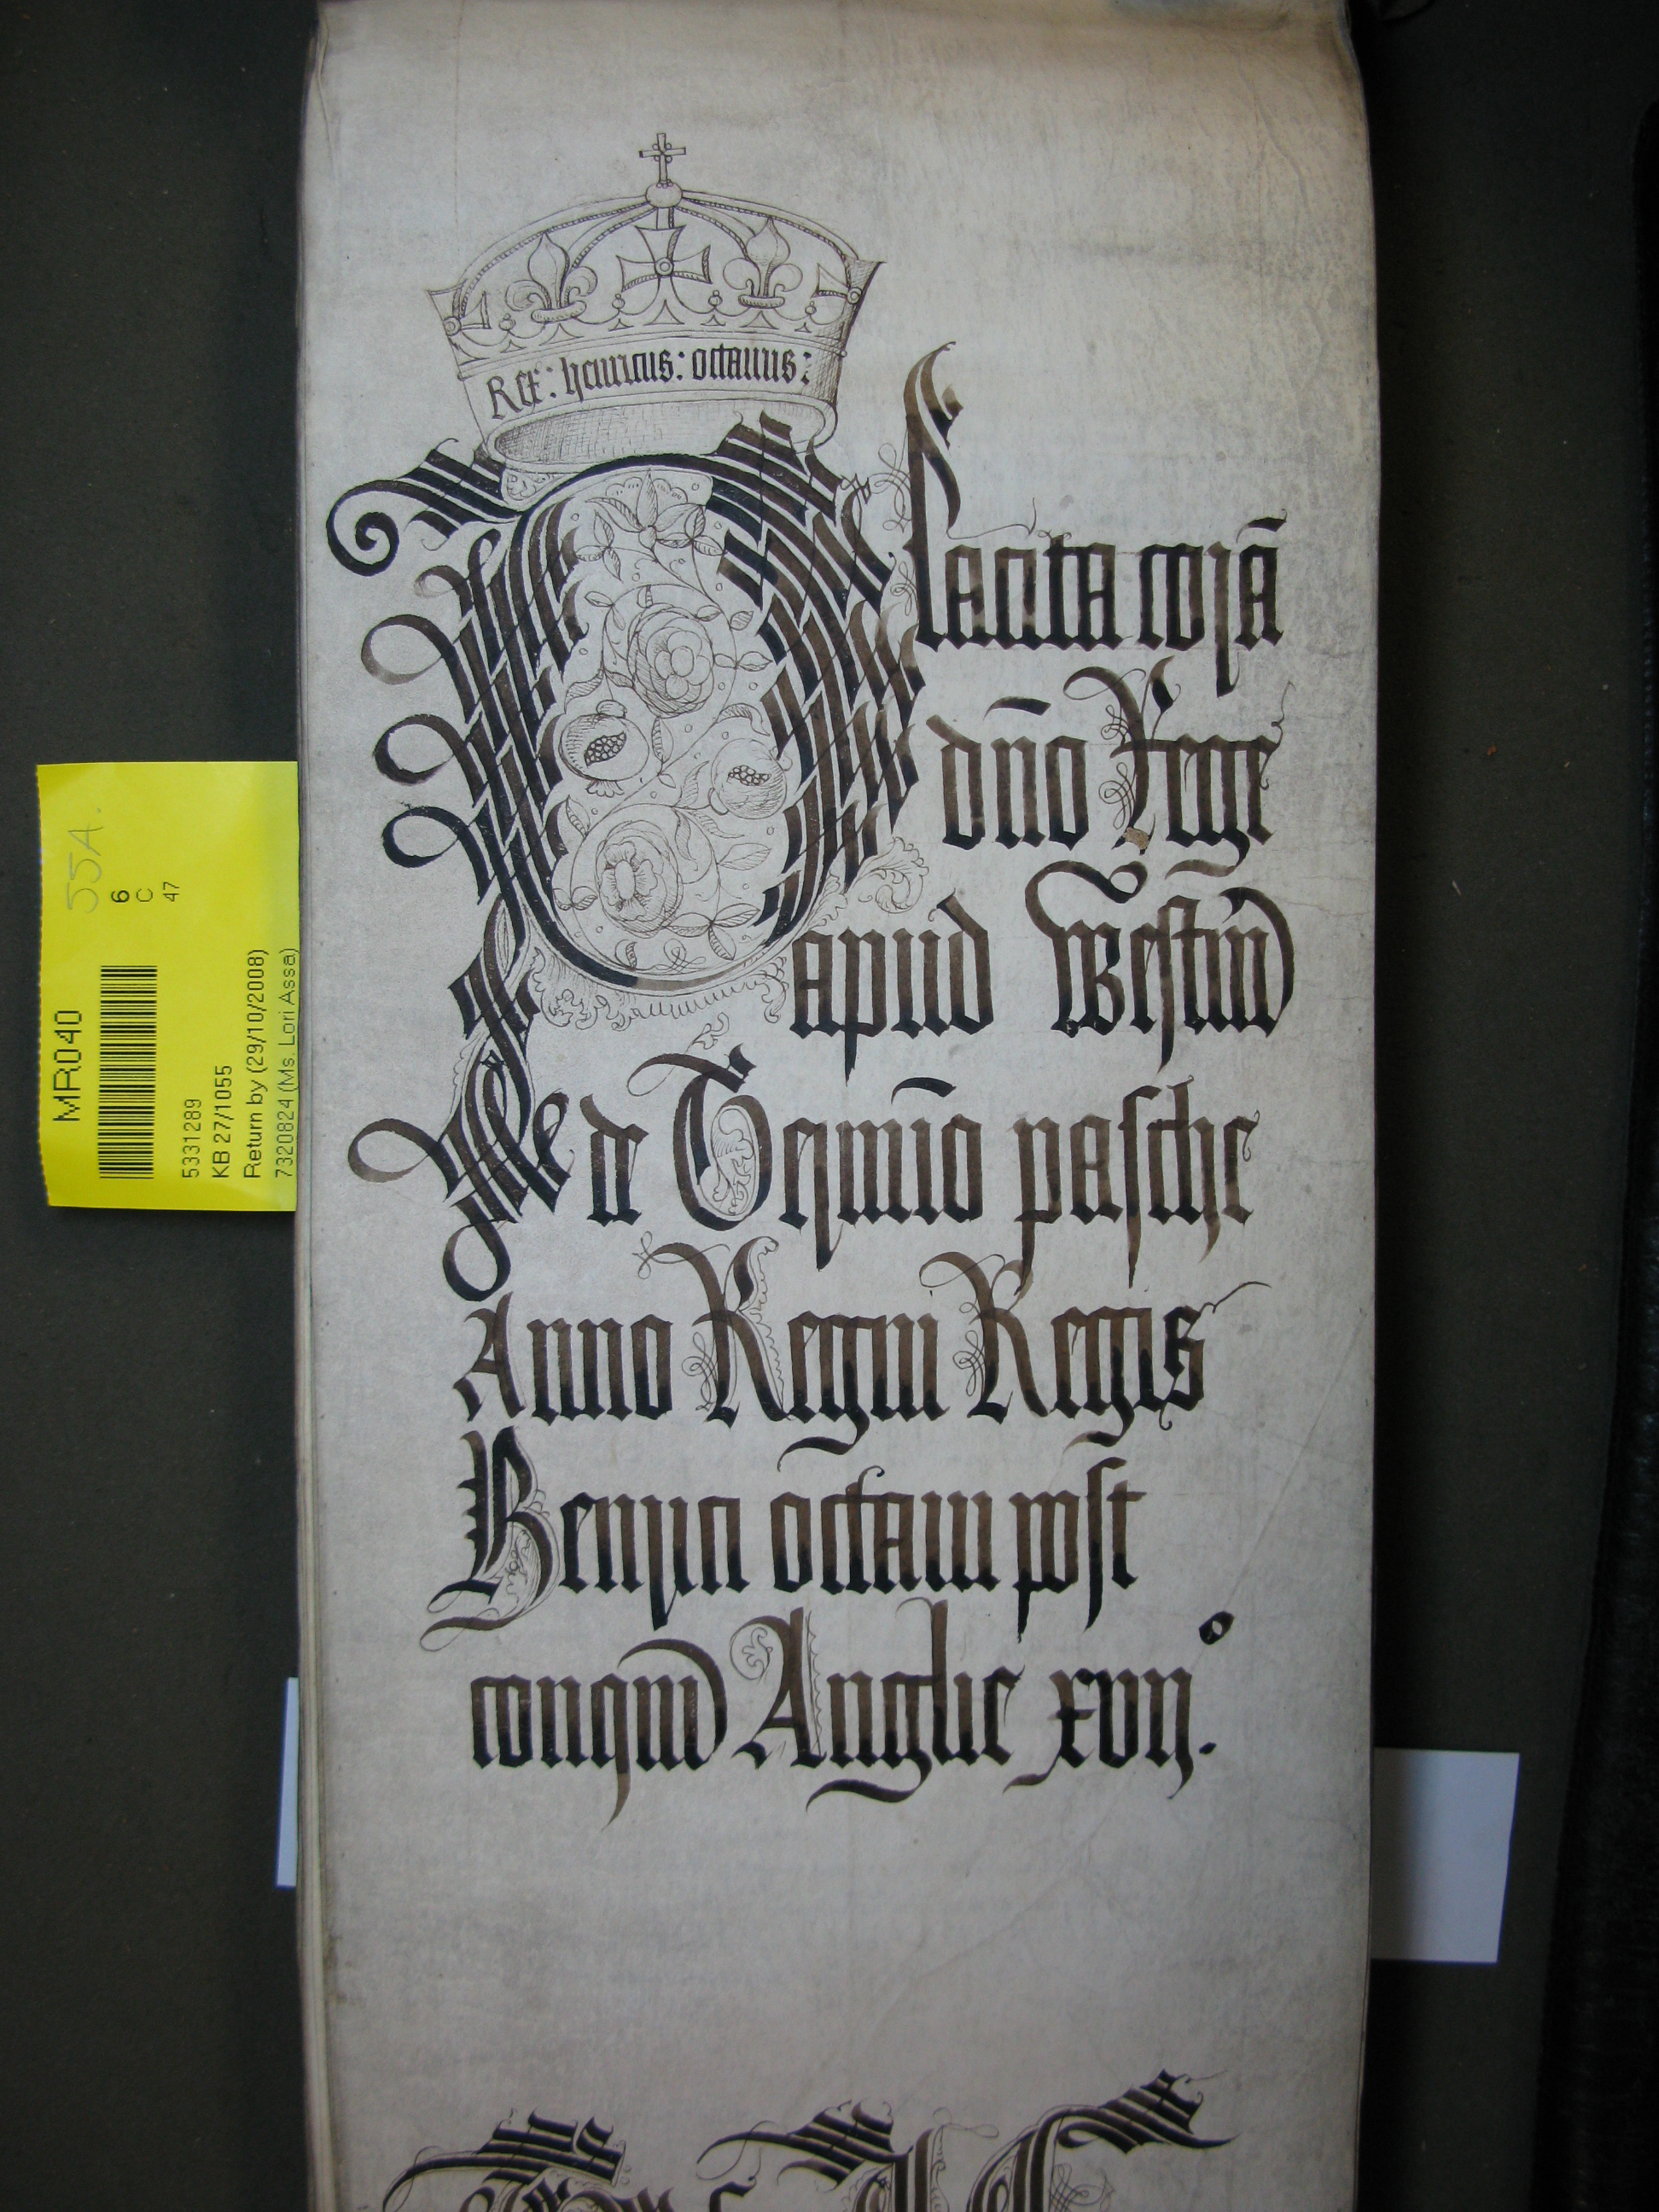 Rex: henricus: octauus:
Placita corã
dño Rege
apud Westm̃
de Termĩo pasche
Anno Regni Regis
Henrici octaui post
conqm̃ Anglie xvijº.
MR040
55A.
6
C
47
5331289
KB 27/1055
Return by (29/10/2008)
7320824 (Ms. Lori Assa)